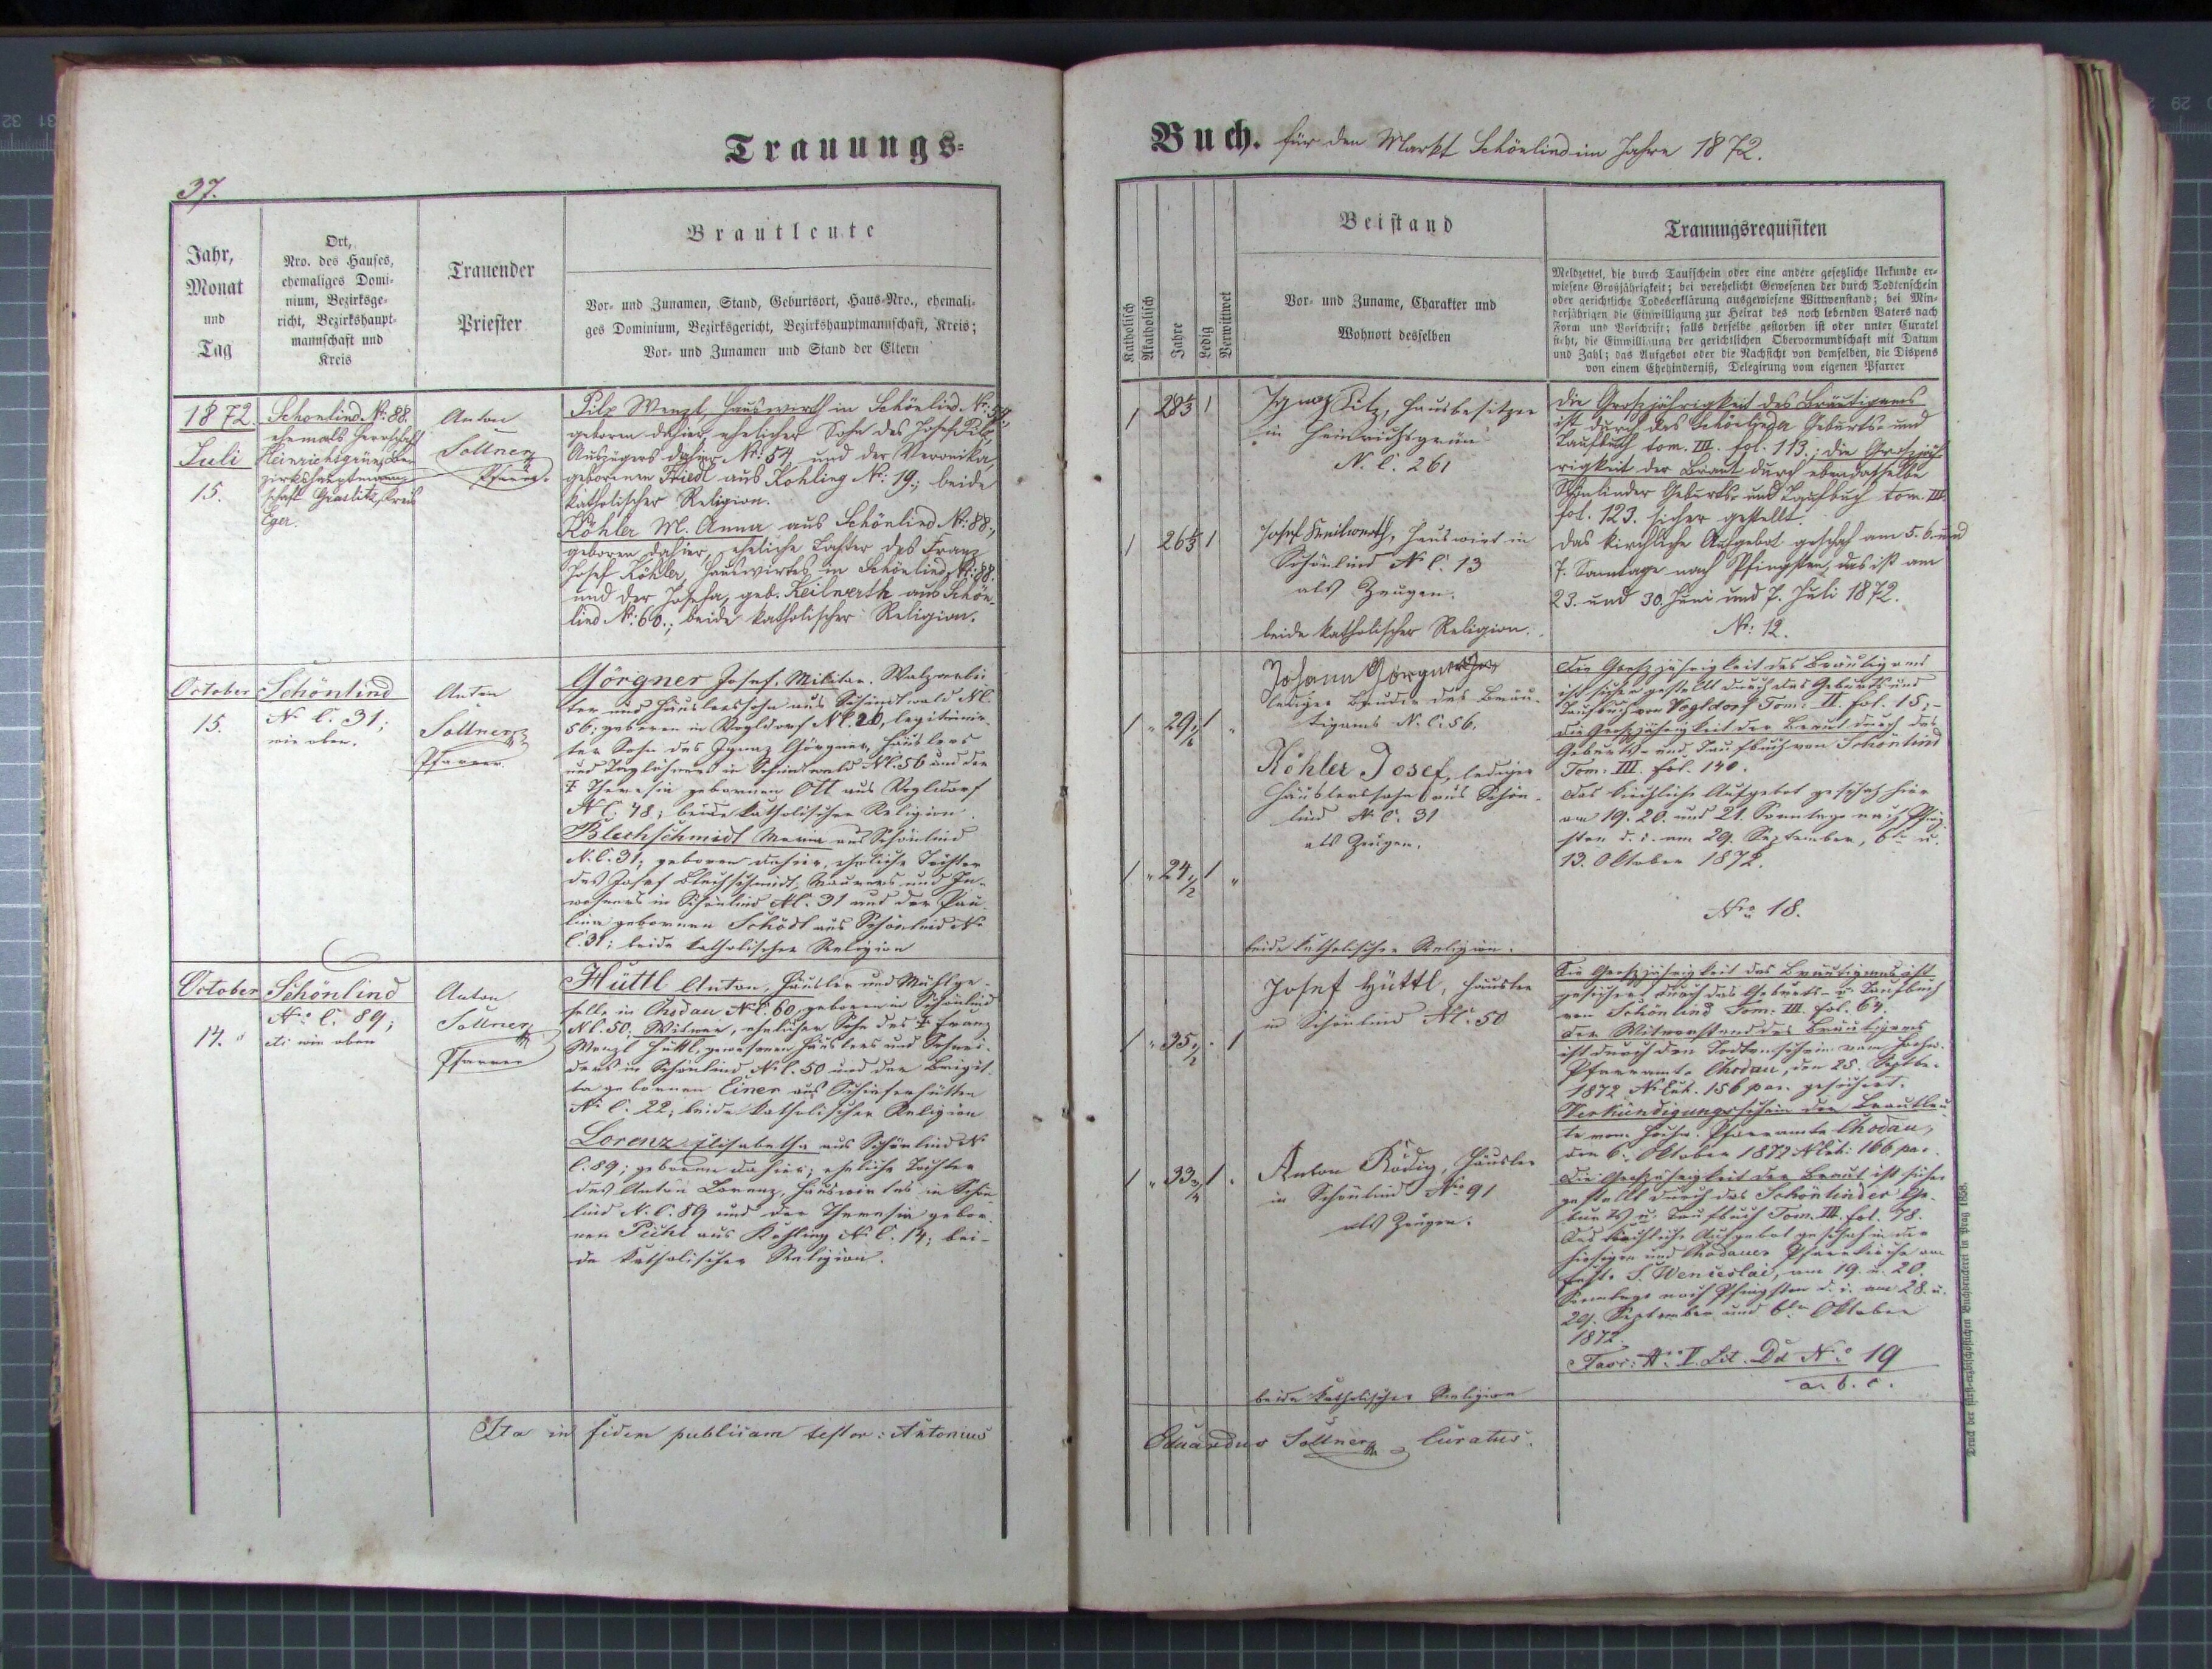 Trauungs=
37.
Jahr,
Monat
und
Tag
Ort,
Nro. des Hauses,
ehemaliges Domi-
nium, Bezirksge-
richt, Bezirkshaupt-
mannschaft und
Kreis
Trauender
Priester
Brautleute
Vor- und Zunamen, Stand, Geburtsort, Haus-Nro., ehemali-
ges Dominium, Bezirksgericht, Bezirkshauptmannschaft, Kreis;
Vor- und Zunamen und Stand der Eltern
1872.
Juli
15.
Schönlind N: 88.
ehemals Herrschaft
Heinrichsgrün, Be-
zirkshauptmann-
schaft Graslitz, Kreis
Eger.
Anton
Sollner
Pfarrer.
Pilz Wenzl, Hauswirth in Schönlind N:
geboren dahier, ehelicher Sohn des Josef Pilz
Auszügers dahier N: 54 und der Veronika,
geborenen Friedl aus Kohling N: 19.; beide
katholischer Religion.
Köhler M. Anna aus Schönlind N: 88.,
geboren dahier, eheliche Tochter des Franz
Josef Köhler, Hauswirtes in Schönlind N: 88.
und der Josefa, geb. Keilwerth aus Schön-
lind N: 60.; beide katholischer Religion.
October
15.
Schönlind
N. C. 31;
wie oben.
Anton
Sollner
Pfarrer
Görgner Josef, Militär.
ter und Häuslerssohn aus Schindlwald N C.
56; geboren in Vogldorf N C. 26, legitimir-
ter Sohn des Ignaz Görgner, Häuslers
und Taglöhners in Schindlwald N C. 56 und der
† Theresia gebornen Ott aus Vogldorf
N C. 48; beide katholischer Religion.
Blechschmidt Maria aus Schönlind
N. C. 31; geboren dahier, eheliche Tochter
des Josef Blechschmidt, Maurers und In-
wohners in Schönlind N C. 31 und der Pau-
lina gebornen Schödl aus Schönlind N.
C. 31; beide katholischer Religion
October
14.
Schönlind
N. C. 89;
wie oben
Anton
Sollner
Pfarrer
Hüttl Anton, Häusler und Mühlge-
sell, in Chodau N C. 60, geboren in Schönlind
N C. 50; Witwer, ehelicher Sohn des † Franz
Wenzl Hüttl, gewesenen Häuslers und Schnei-
ders in Schönlind N C. 50 und der Brigit-
ta gebornen Einer aus Schieferhütten
N. C. 22; beide katholischer Religion
Lorenz Elisabetha aus Schönlind N.
C. 89; geboren dahier; eheliche Tochter
des Anton Lorenz, Hauswirtes in Schön-
lind N. C. 89 und der Theresia gebor-
nen Pichl aus Kohling N. C. 14; bei-
de katholischer Religion.
Ita in fidem publicam testor: Antonius
Buch. für den Markt Schönlind im Jahre 1872.
Katholisch
Akatholisch
Jahre
Ledig
Verwittwet
Beistand
Vor- und Zuname, Charakter und
Wohnort desselben
Trauungsrequisiten
Meldzettel, die durch Taufschein oder eine andere gesetzliche Urkunde er-
wiesene Großjährigkeit; bei verehelicht Gewesenen der durch Todtenschein
oder gerichtliche Todeserklärung ausgewiesene Wittwenstand; bei Min-
derjährigen die Einwilligung zur Heirat des noch lebenden Vaters nach
Form und Vorschrift; falls derselbe gestorben ist oder unter Curatel
steht, die Einwilligung der gerichtlichen Obervormundschaft mit Datum
und Zahl; das Aufgebot oder die Nachsicht von demselben, die Dispens
von einem Ehehinderniß, Delegirung vom eigenen Pfarrer
1 1
Ignaz Pilz, Hausbesitzer
in Heinrichsgrün
N. C. 261
1 1
Josef Keilwerth, Hauswirt in
Schönlind N C. 13
als Zeugen.
beide katholischer Religion.
Die Großjährigkeit des Bräutigams
ist durch das Schönlinda Geburts- und
Taufbuch tom. III. fol. 113.; die Großjäh-
rigkeit der Braut durch ebendasselbe
Schönlinder Geburts- und Taufbuch tom. III.
fol. 123. sicher gestellt.
Das kirchliche Aufgebot geschah am 5. 6. und
7. Sonntage nach Pfingsten, das ist am
23. und 30. Juni und 7. Juli 1872.
N: 12.
Johann Görgner
lediger Bruder des Bräu-
tigams N. C. 56.
1 " 29 1 "
Köhler Josef, lediger
Häuslerssohn aus Schön-
lind N. C. 31
als Zeugen.
1 " 24 1/2 1 "
beide katholischer Religion.
Die Großjährigkeit des Bräutigams
ist sicher gestellt durch das Geburts und
Taufbuch von Vogldorf Tom: II. fol. 15; -
die Großjährigkeit der Braut durch das
Geburts- und Taufbuch von Schönlind
Tom: III. fol. 140.
Das kirchliche Aufgebot geschah hier
am 19. 20. und 21. Sonntage nach Pfing-
sten d. i. am 29. September, 6 u.
13. Oktober 1872.
Nro 18.
Josef Hüttl, Häusler
in Schönlind N C. 50
1 " 35 1/2 . 1
1 " 33 3/4 1 .
Anton Rödig, Häusler
in Schönlind Nro 91
als Zeugen.
beide katholischer Religion
Die Großjährigkeit des Bräutigams ist
gesichert durch das Geburts- u. Taufbuch
von Schönlind Tom: III. fol. 64.
Der Witwerstand des Bräutigams
ist durch den Todtenschein vom
Pfarramte Chodau, den 25. Septbr.
1872 N. Exh. 156 par. gesichert.
Verkündigungsschein der Brautleu-
te vom Pfarramte Chodau,
den 6. Oktober 1872 N Exh: 166 par.
Die Großjährigkeit der Braut ist sicher
gestellt durch das Schönlinder Ge-
burts u. Taufbuch Tom. III. fol. 78.
Das kirchliche Aufgebot geschah in der
hiesigen und Chodauer Pfarrkirche am
Feste S. Wenceslai, am 19. u. 20.
Sonntage nach Pfingsten d. i. am 28. u.
29. September und 6 Oktober
1872.
Fasc: V. Lit. Dd N. 19
a. b. c.
Eduardus Sollner Curatus.
Druck der fürst-erzbischöflichen Buchdruckerei in Prag 1868.